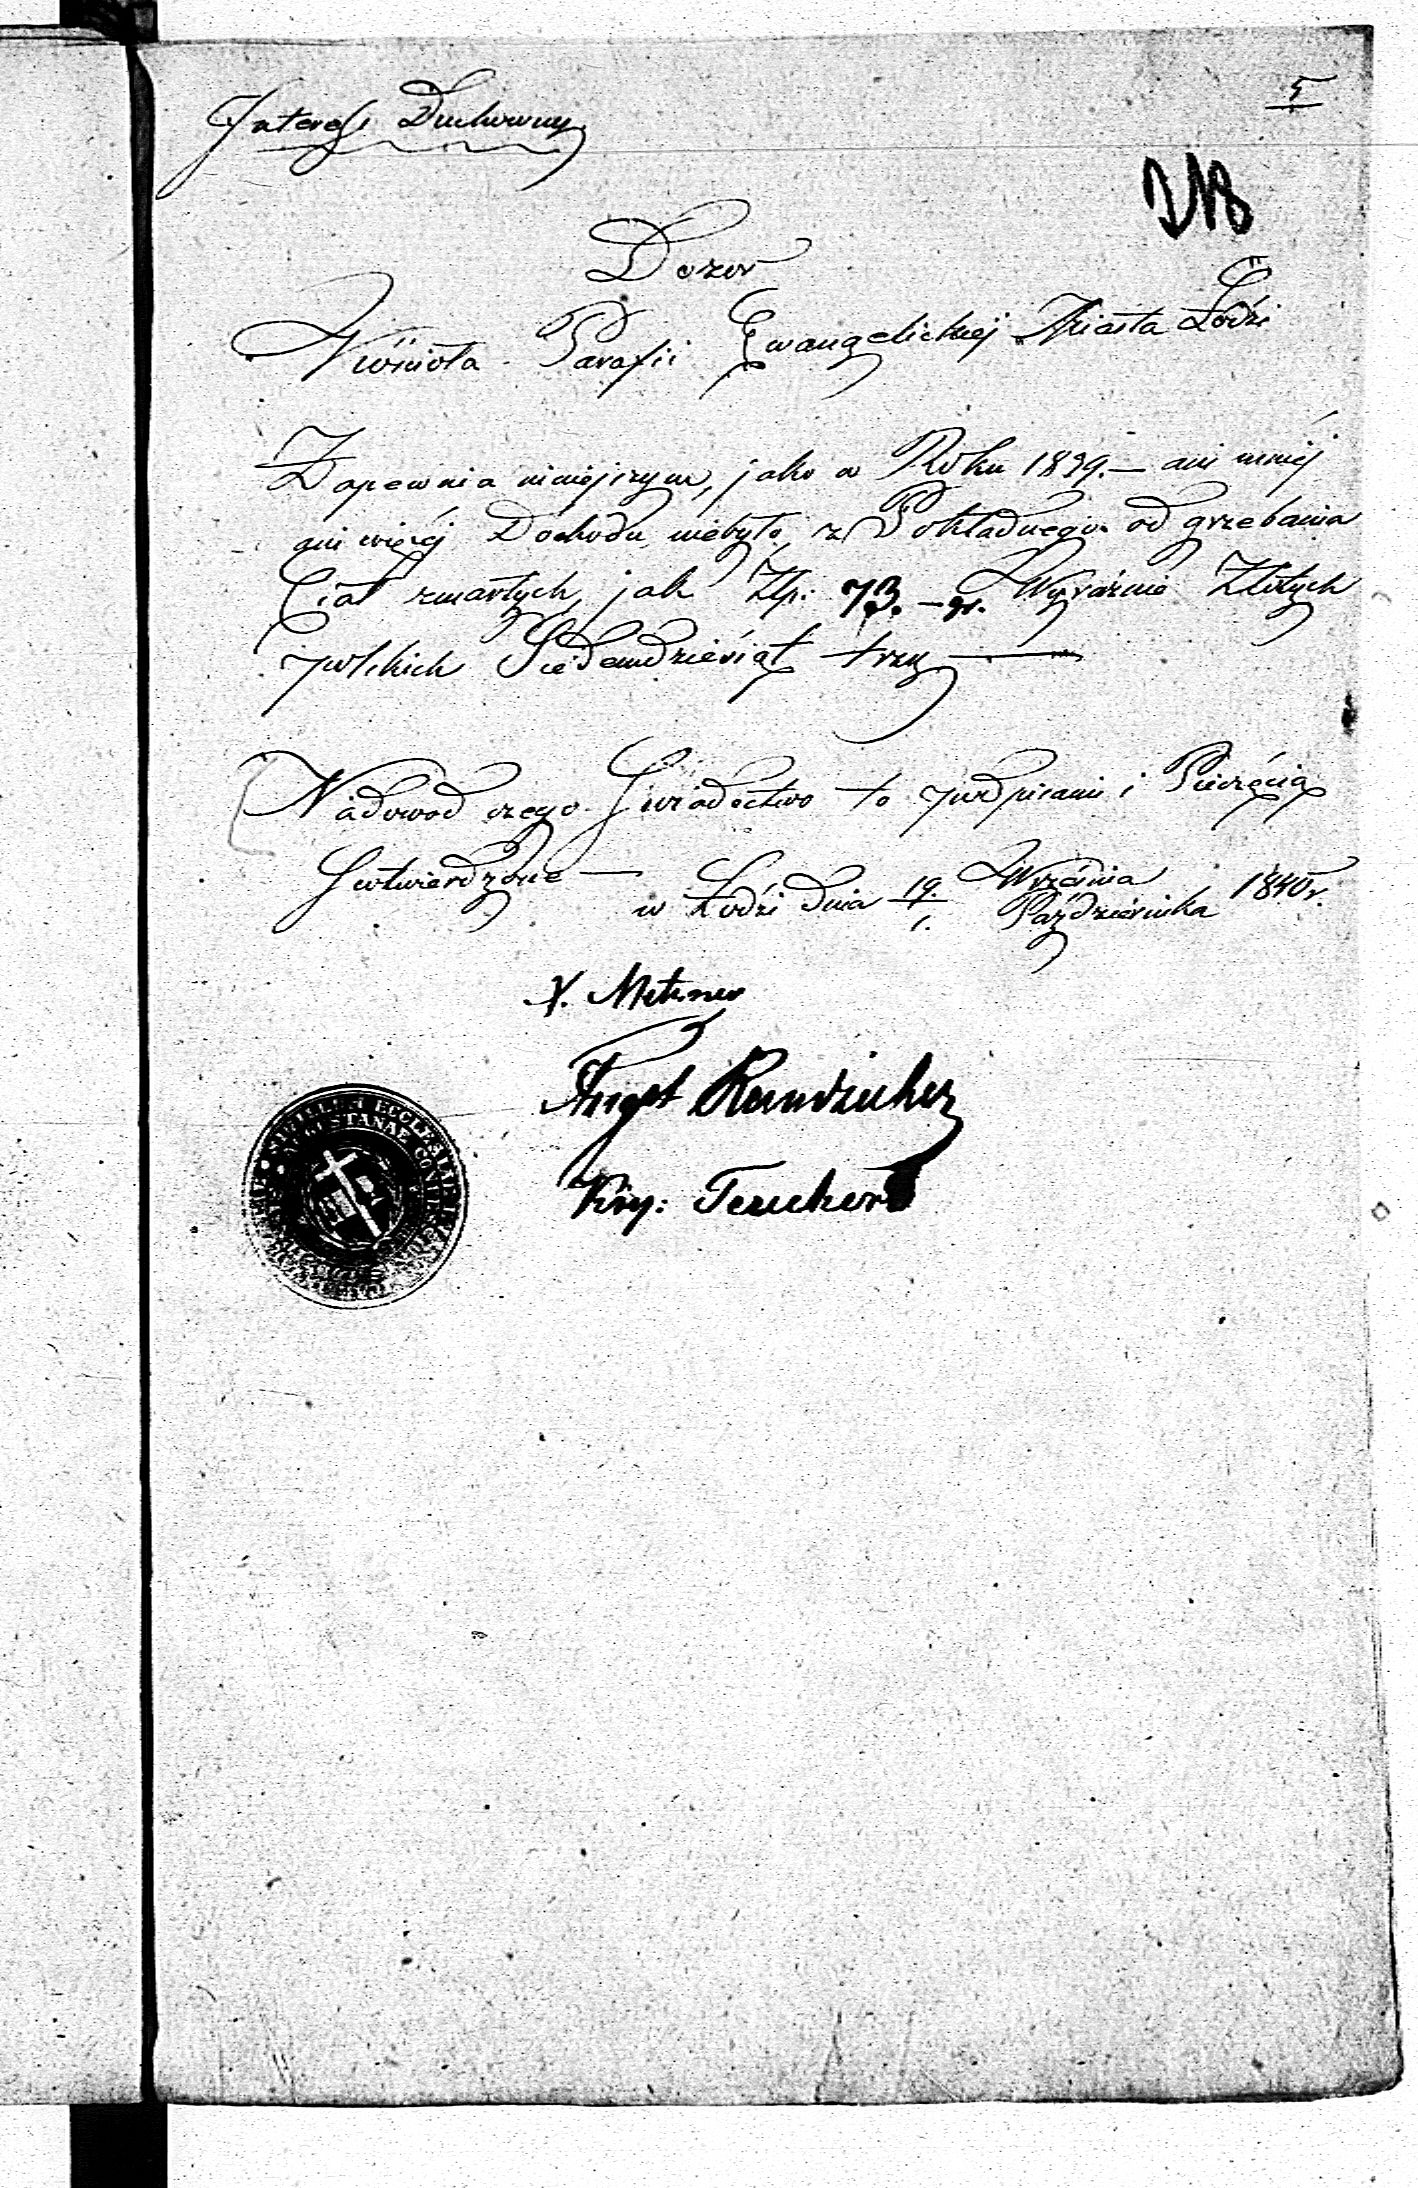 Interess Duchowny
5
Dozor
Kościoła Parafii Ewangelickiej Miasta Łodzi
Zapewnia niniejszym, jako w Roku 1839. — ani mniéj
ani więcéj Dochodu niebyło, z Pokładnego od grzebania
Ciał zmarłych, jak Złp: 73. — gr. Wyraźnie Złotych
polskich Siedemdziesiąt trzy —
Nadowod czego Swiadectwo to podpisami i Pieczęcią
stwierdzone —
w Łodzi dnia 19./1. Września/Października 1840 r.
Metzner
August
Kry: Teuchert
SIGILLUM ECCLESIAE
AUGUSTANAE CONFESS